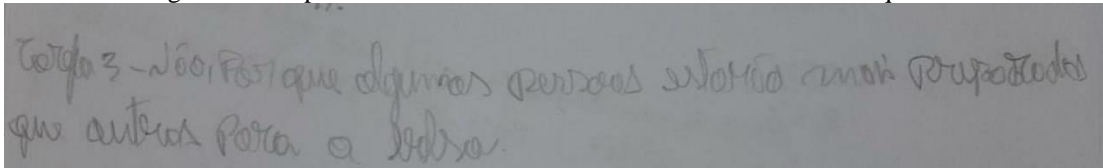 Grupo 3 - Não, Por que algumas pessoas estarão mais preparadas
que outras Para a bolsa.